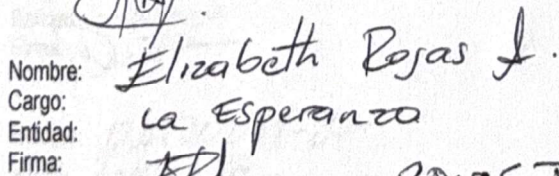 Nombre: Elizabeth Rojas
Cargo:
Entidad: La Esperanza
Firma: